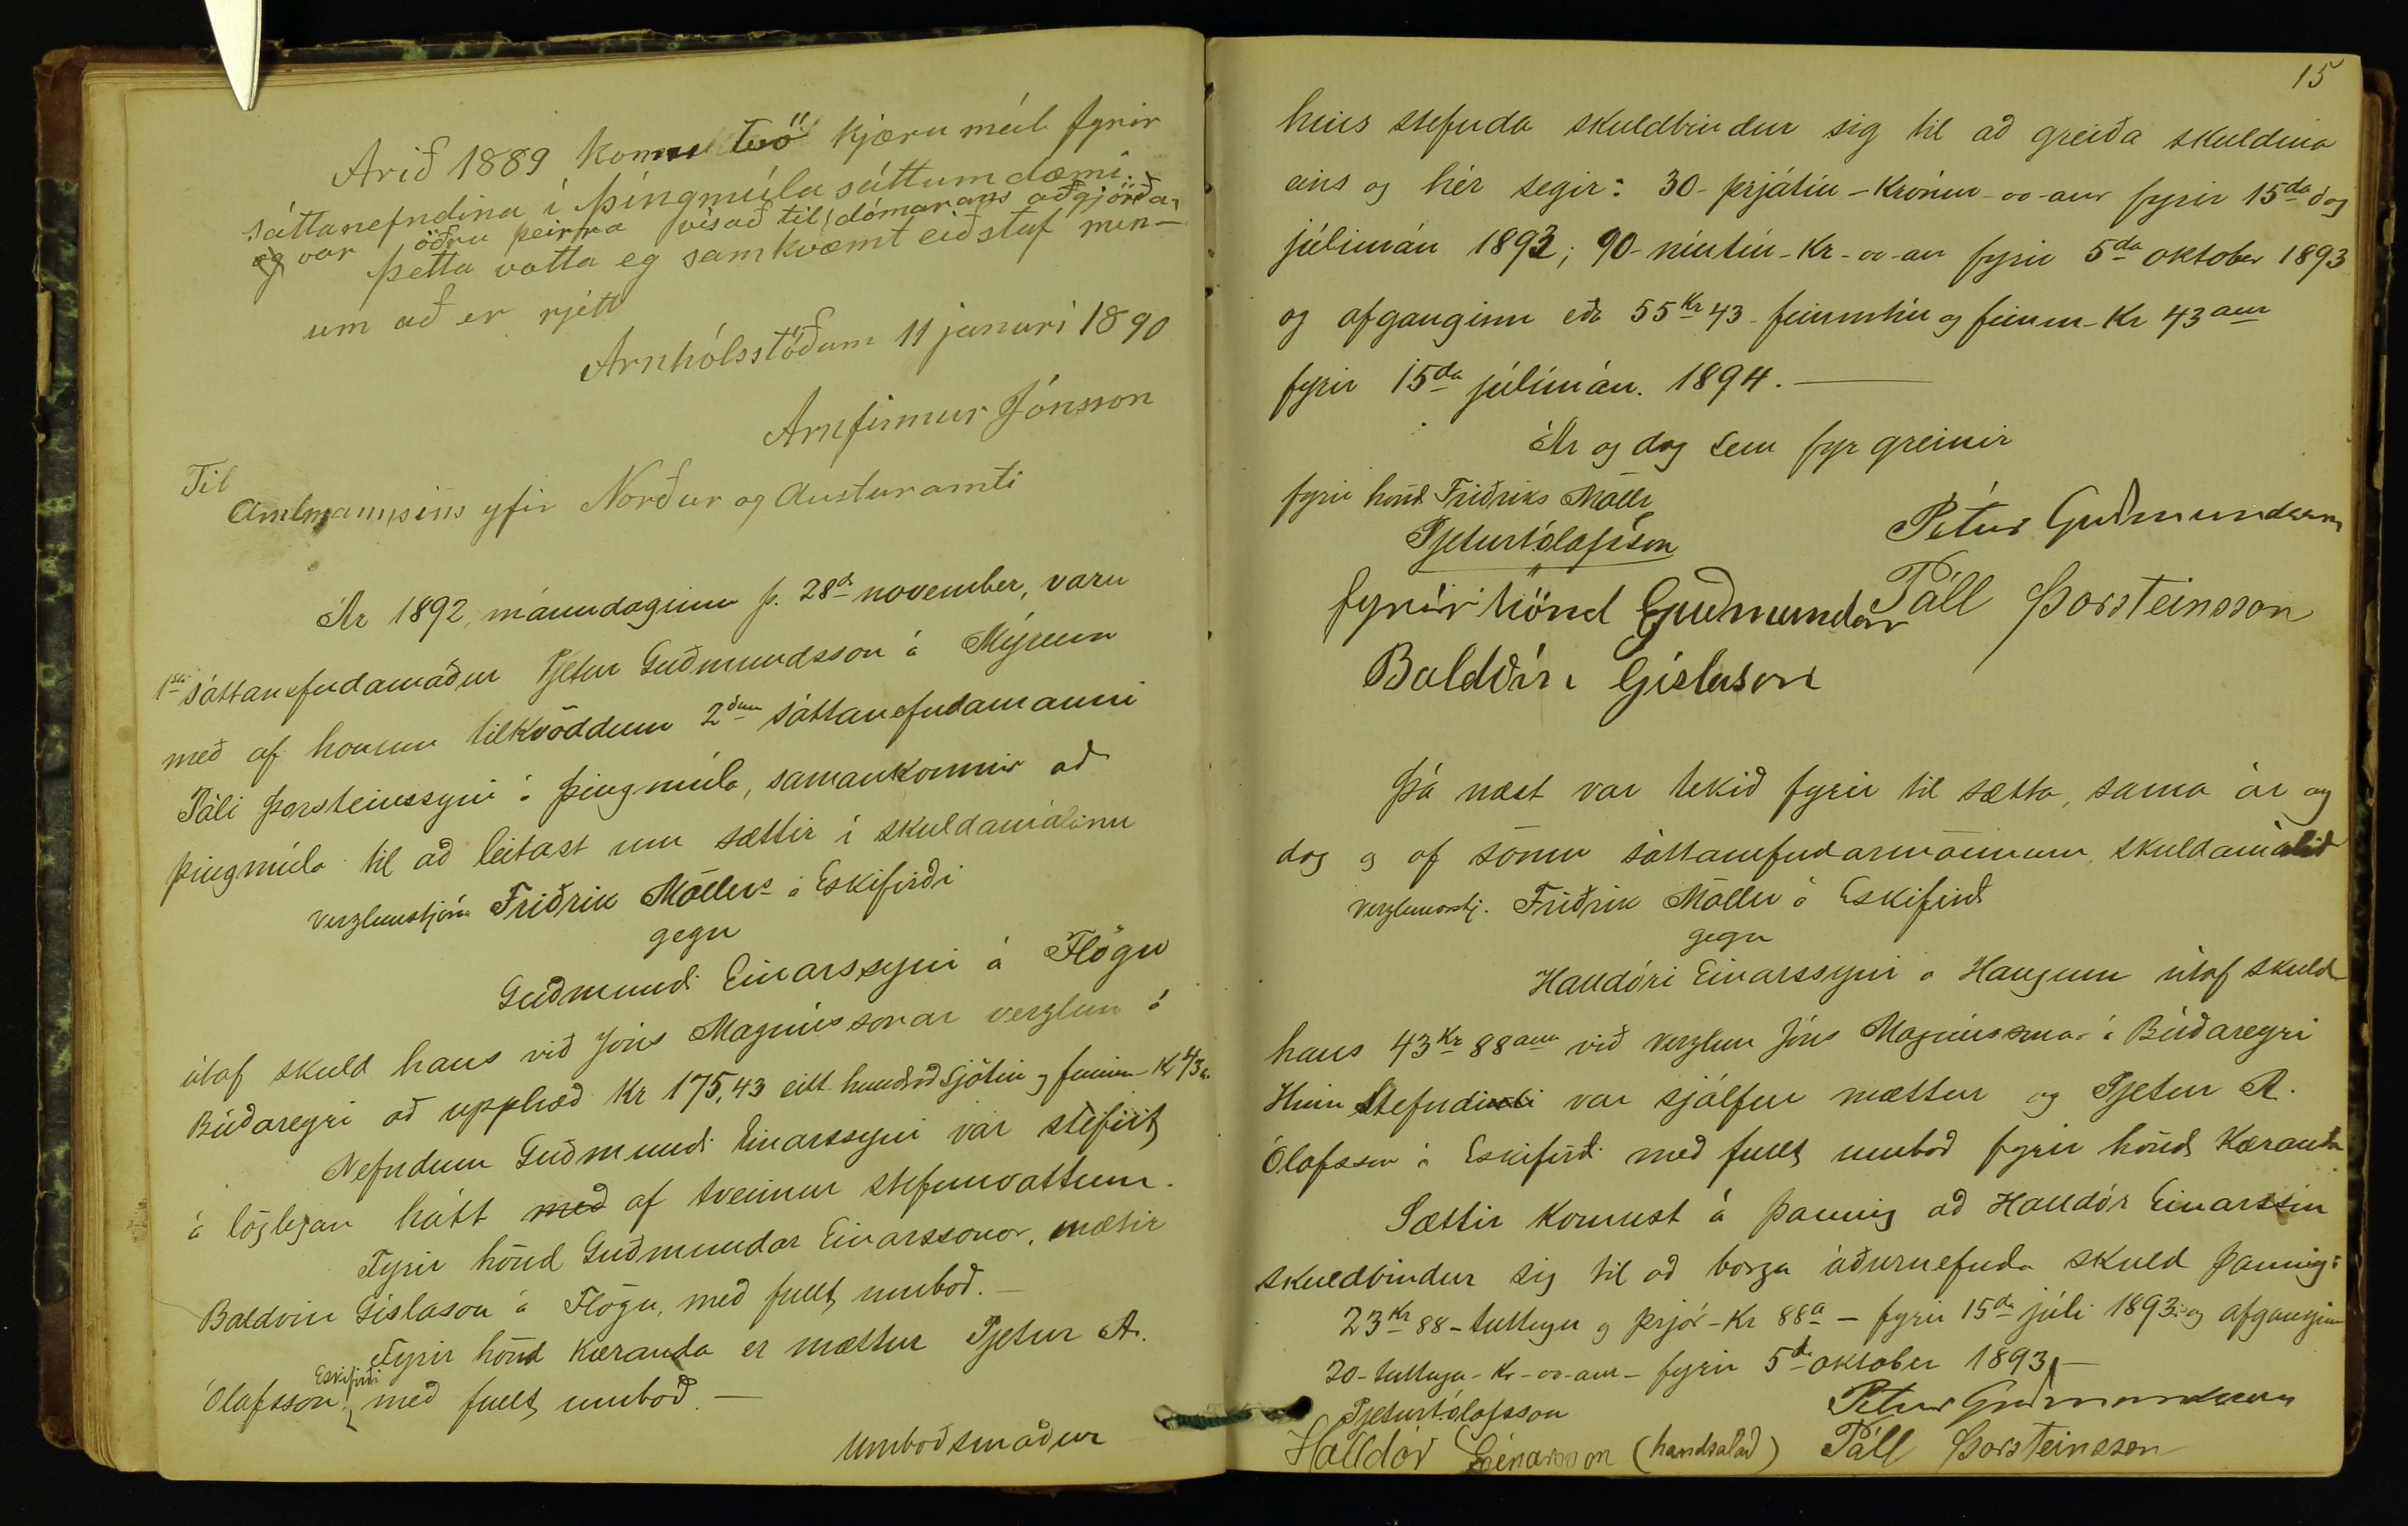 Arið 1889 komu tvö kjærumál fyrir
sáttanefndina í Þíngmúla sáttumdæmi.
og var öðru þeirra vísað til dómarans aðgjörða,
þetta votta eg samkvæmt eiðstaf mín-
um að er rjett
Arnhólsstöðum 11 janúri 1890
Arnfinnur Jónsson
Til
Amtmannsins yfir Norður og Austuramti
Ár 1892, mánudaginn þ. 28d november, varu
1sti sáttanefndamaður Pjetur Guðmundsson á Mýrum
með af honum tilkvöddum 2ðum sáttanefndamanni
Páli Þorsteinssyni á Þingmúla, samankomnir að
Þingmúla til að leitast um sættir í skuldamálinu
verzlunstjóra Friðrik Möllers á Eskifirði
gegn
Guðmundi Einarssyni á Flögu
útaf skuld hans við Jóns Magnússonar verzlun á
Búðareyri að upphæð Kr 175,43 eitt hundrað sjötíu og fimm Kr 43 a.
Nefndum Guðmundi Einarssyni var stefnt
á löglegan hátt með af tveimur stefnuvottum.
Fyrir hönd Guðmundar Einarssonar, mætir
Baldvin Gíslason á Flögu, með fullt umboð. —
Fyrir hönd Kæranda er mættur Pjetur A.
Eskifirði
Ólafsson, með fullt umboð. —
Umboðsmaður
15
hins stefnda skuldbindur sig til að greiða skuldina
eins og hér segir: 30 - þrjátíu - Krónur - oo - aur fyrir 15da dag
júlímán 1893; 90 - níutíu - Kr - oo - au fyrir 5da oktober 1893
og afganginn eða 55 Kr 43 - fimmtíu og fimm - Kr 43 aur
fyrir 15da júlímán. 1894. —
Ár og dag sem fyr greinir
fyrir hönd Friðriks Möller
Pjetur A Ólafsson
Pétur Guðmundsson
fyrir hönd Guðmundar
Páll Þorsteinsson
Baldvin Gíslason
Þá næst var tekið fyrir til sætta, sama ár og
dag og af sömu sáttanefndarmönnum, skuldamálið
verzlunarstj. Friðrik Möller á Eskifirði
gegn
Halldóri Einarssyni á Haugum útaf skuld
hans 43 Kr 88 aur við verzlun Jóns Magnússonar á Búðareyri
Hinn Stefndi var sjálfur mættur og Pjetur A.
Ólafsson á Eskifirði með fullt umboð fyrir hönd Kæranda
Sættir komust á þannig að Halldór Einarsson
skuldbindur sig til að borga áðurnefnda skuld þannig:
23 Kr 88 - tuttugu og þrjár - Kr 88 a - fyrir 15da júlí 1893 og afganginn
20 - tuttugu - Kr - oo - aur - fyrir 5da oktober 1893 —
Pjetur A Ólafsson
Pétur Guðmundsson
Halldór Einarsson (handsalað)
Páll Þorsteinsson